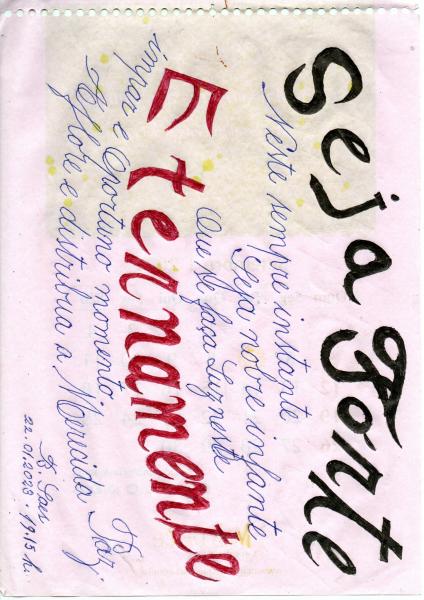 Seja Forte
Neste sempre instante
Seja nobre infante
Que se faça Luz neste
Eternamente
ímpar e Oportuno momento.
Aflore e distribua a Merecida Paz;
22.01.2023 - 19:15 h.